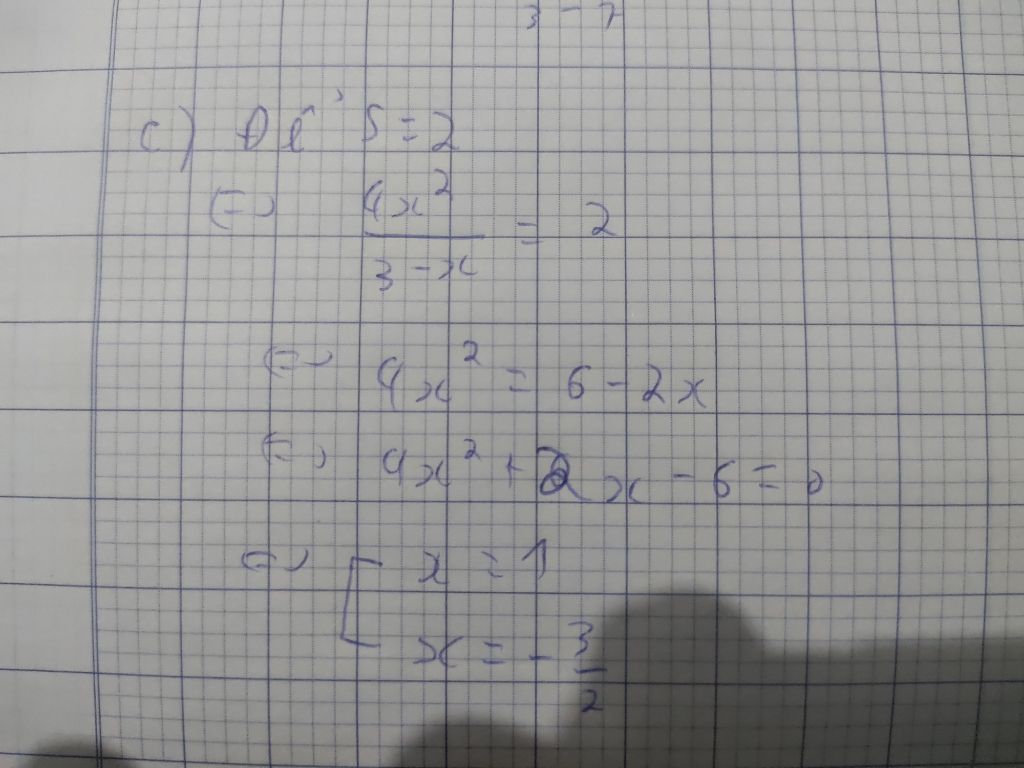 3 - 7
c) Để S = 2
(=) 4x² / 3 - x = 2
(=) 4x² = 6 - 2x
(=) 4x² + 2x - 6 = 0
(=) [ x = 1
x = - 3/2